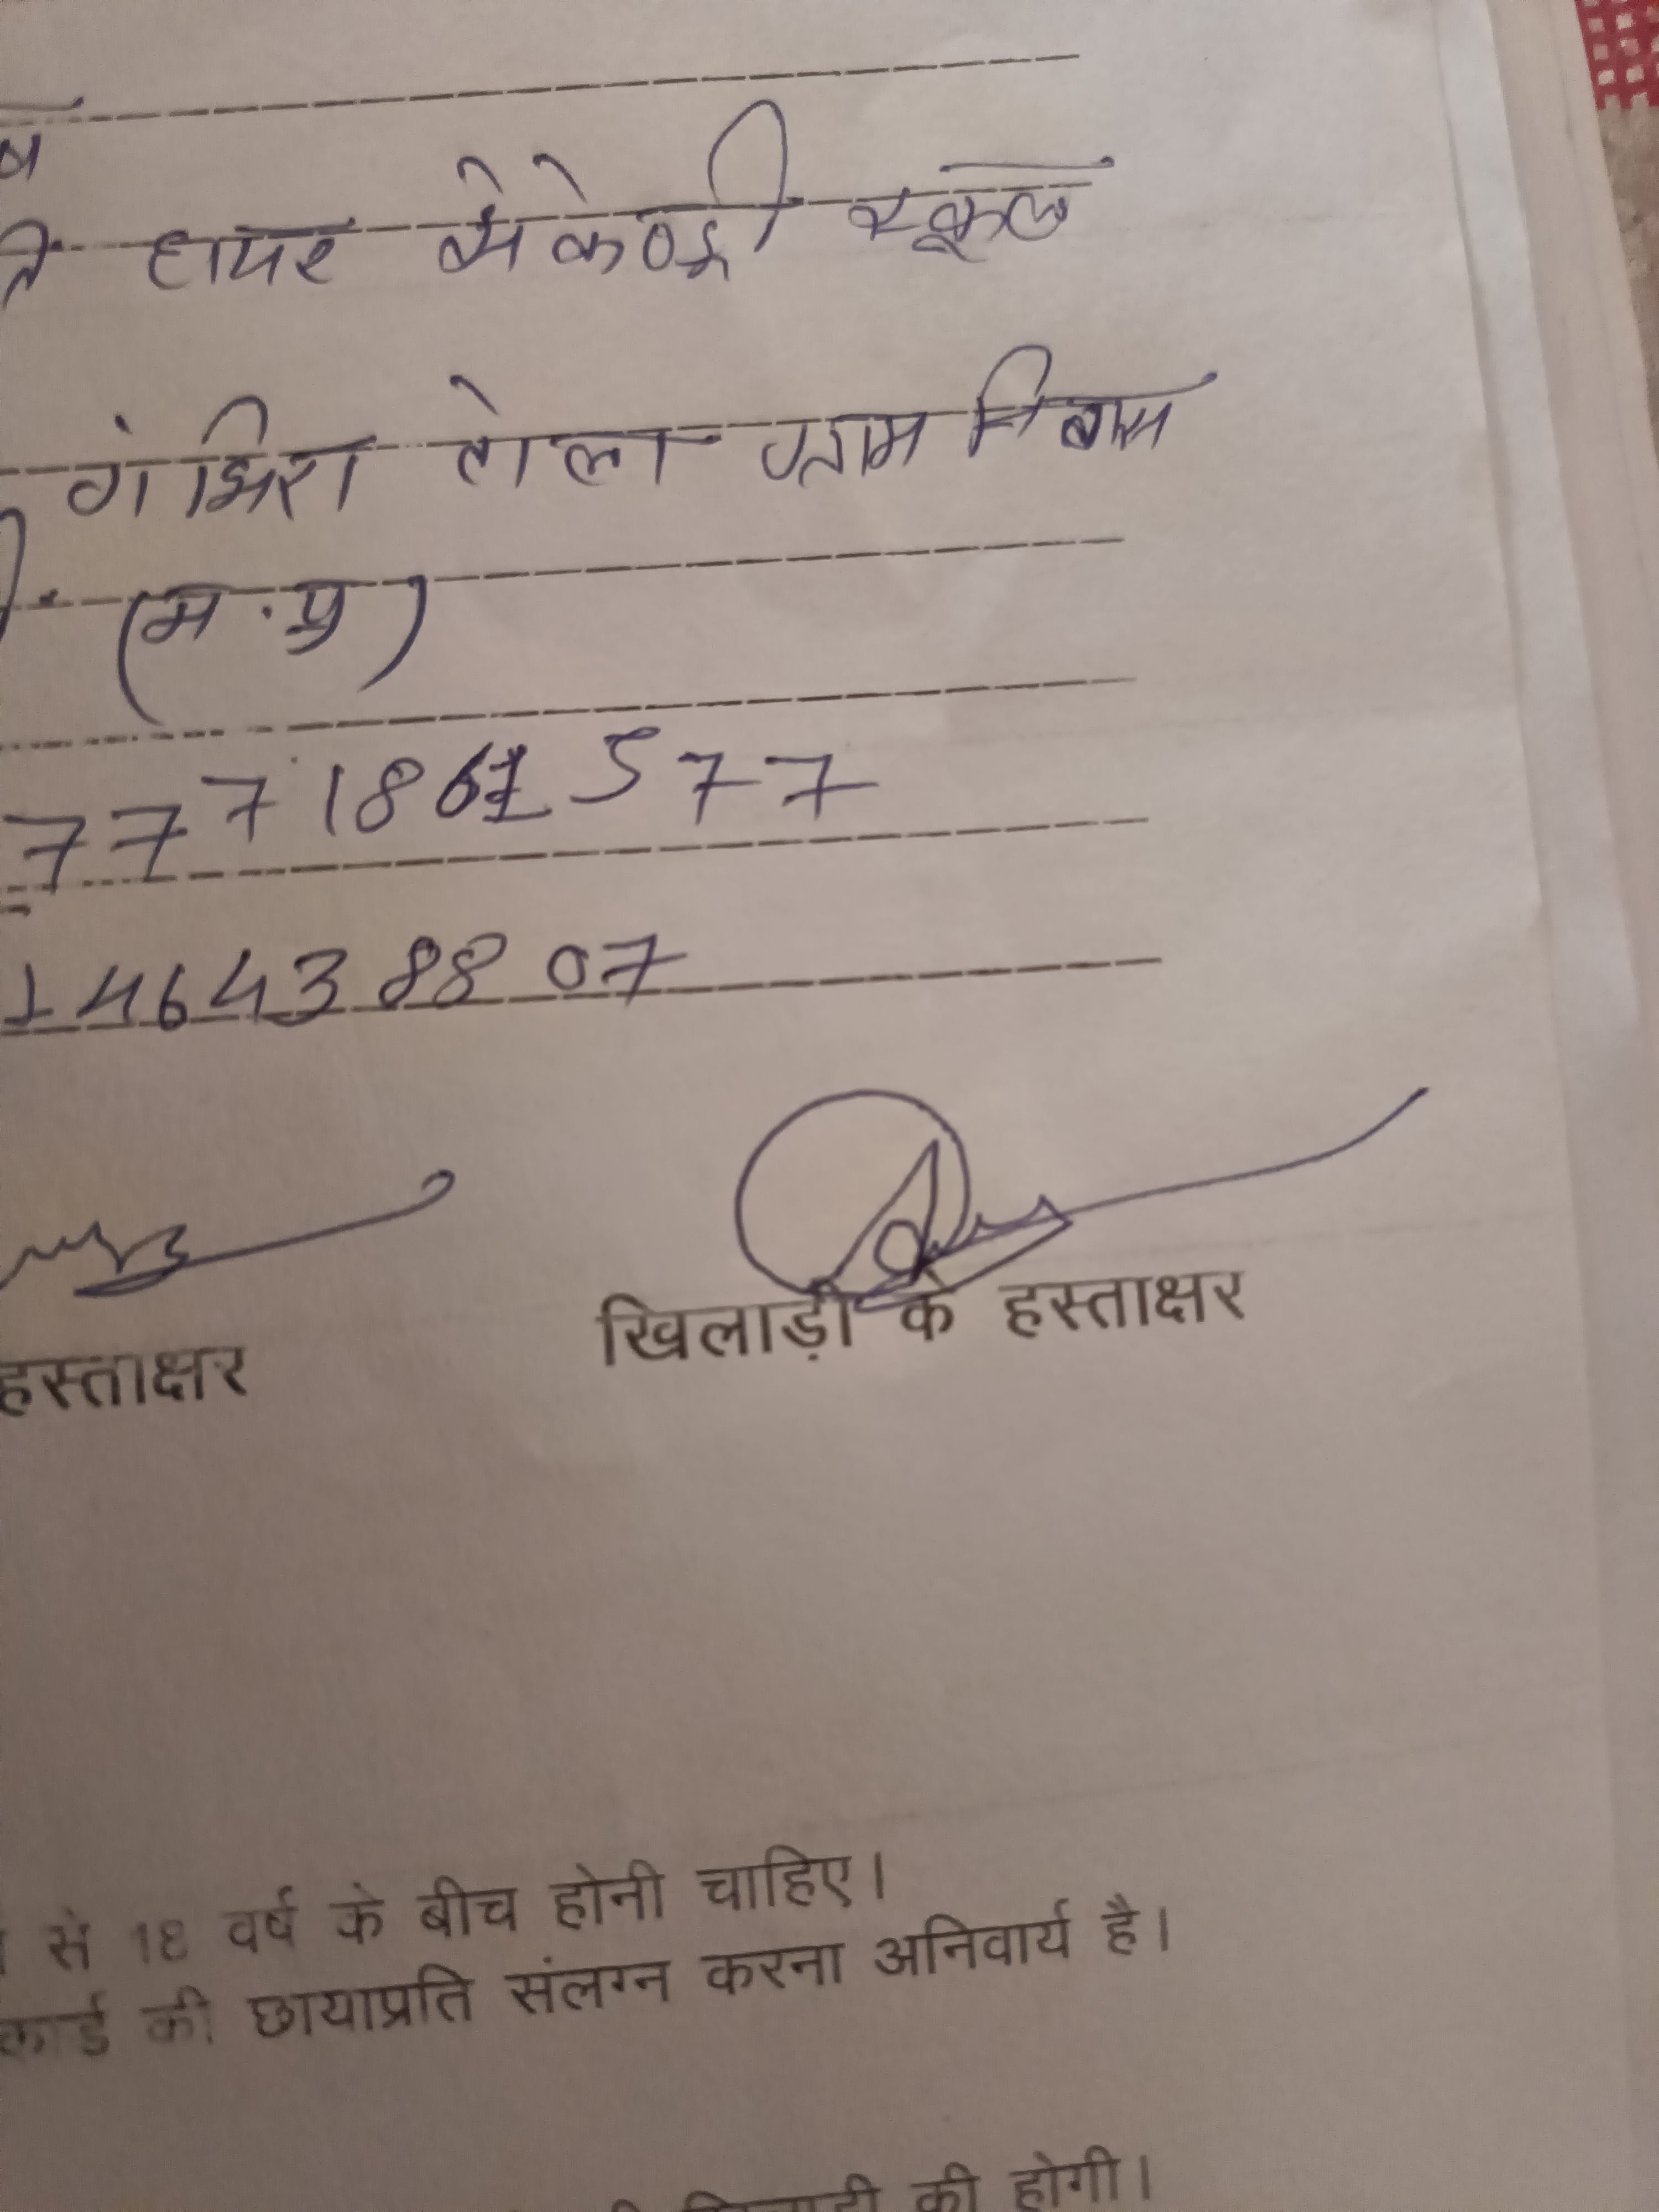 र्ष
हायर सेकेण्ड्री स्कूल
गंभिरा टोला ग्राम निवास
(म.प्र)
7771861577
1464388807
हस्ताक्षर
खिलाड़ी के हस्ताक्षर
से 18 वर्ष के बीच होनी चाहिए।
कार्ड की छायाप्रति संलग्न करना अनिवार्य है।
की होगी।